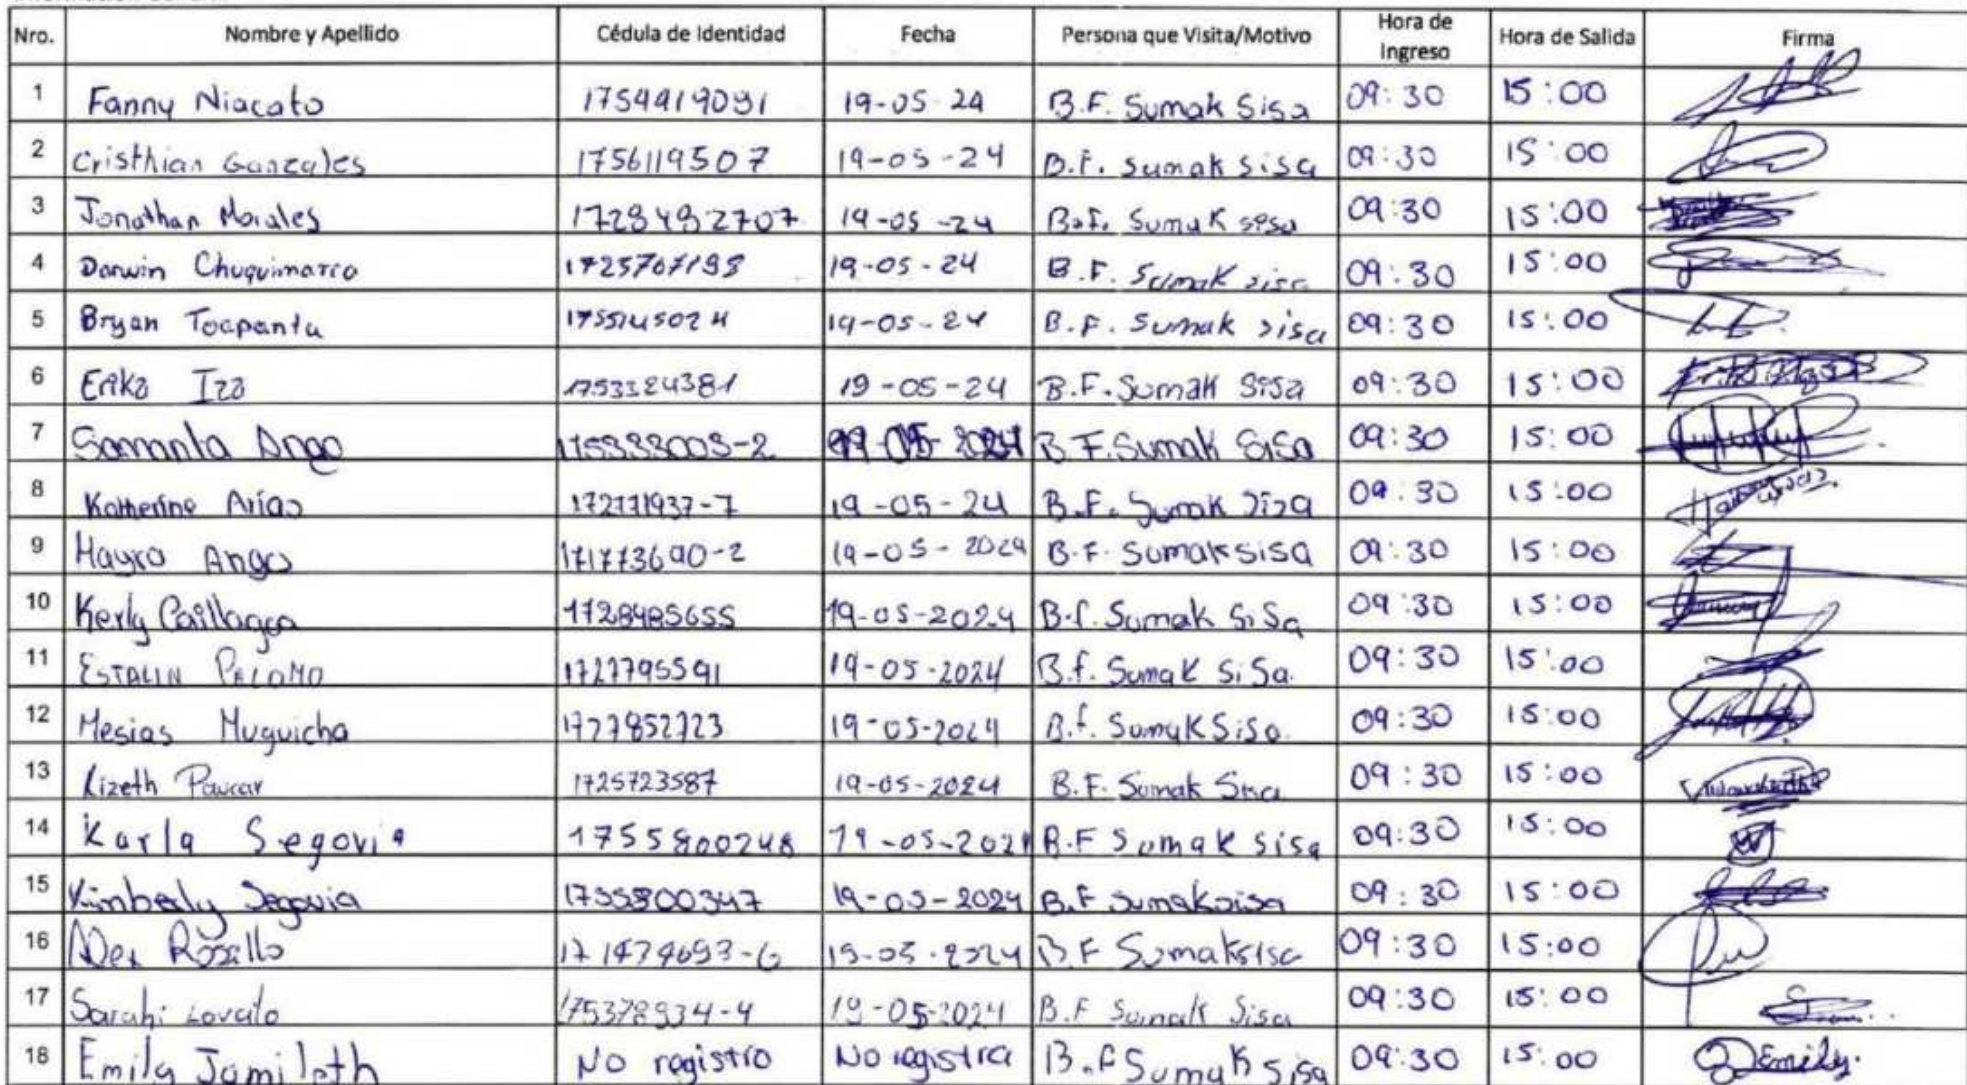 Nro. Nombre y Apellido Cédula de Identidad Fecha Persona que Visita/Motivo Hora de Ingreso Hora de Salida Firma
1 Fanny Niacato 1754419091 19-05-24 B.F. Sumak Sisa 09:30 15:00
2 Cristhian Gonzales 1756119507 19-05-24 B.F. Sumak Sisa 09:30 15:00
3 Jonathan Morales 1728492707 19-05-24 B.F. Sumak sisa 09:30 15:00
4 Darwin Chuquimarca 19-05-24 B.F. Sumak sisa 09:30 15:00
5 Bryan Toapanta 19-05-24 B.F. Sumak sisa 09:30 15:00
6 Erika Iza 19-05-24 B.F. Sumak Sisa 09:30 15:00
7 Samanta Ango 175333003-2 19-05-2024 B.F. Sumak Sisa 09:30 15:00
8 Katherine Arias 172171937-7 19-05-24 B.F. Sumak Sisa 09:30 15:00
9 Mayra Ango 171773690-2 19-05-2024 B.F. Sumak sisa 09:30 15:00
10 Kerly 1728485655 19-05-2024 B.f. Sumak SiSa 09:30 15:00
11 ESTALIN PALOMO 1727795591 19-05-2024 B.f. Sumak SiSa. 09:30 15:00
12 Mesias Muguicha 1727852723 19-05-2024 B.f. Sumak SiSa. 09:30 15:00
13 Lizeth Paucar 1725723587 19-05-2024 B.F. Sumak Sisa 09:30 15:00
14 Karla Segovia 1755800248 19-05-2024 B.F Sumak sisa 09:30 15:00
15 Kimberly Segovia 1755800347 19-05-2024 B.F Sumak sisa 09:30 15:00
16 Alex Rosillo 19-05-2024 B.F Sumak sisa 09:30 15:00
17 Sarahi Lovato 175378934-4 19-05-2024 B.F Sumak Sisa 09:30 15:00
18 Emily Jamileth No registro No registra B.F Sumak sisa 09:30 15:00 Emily.